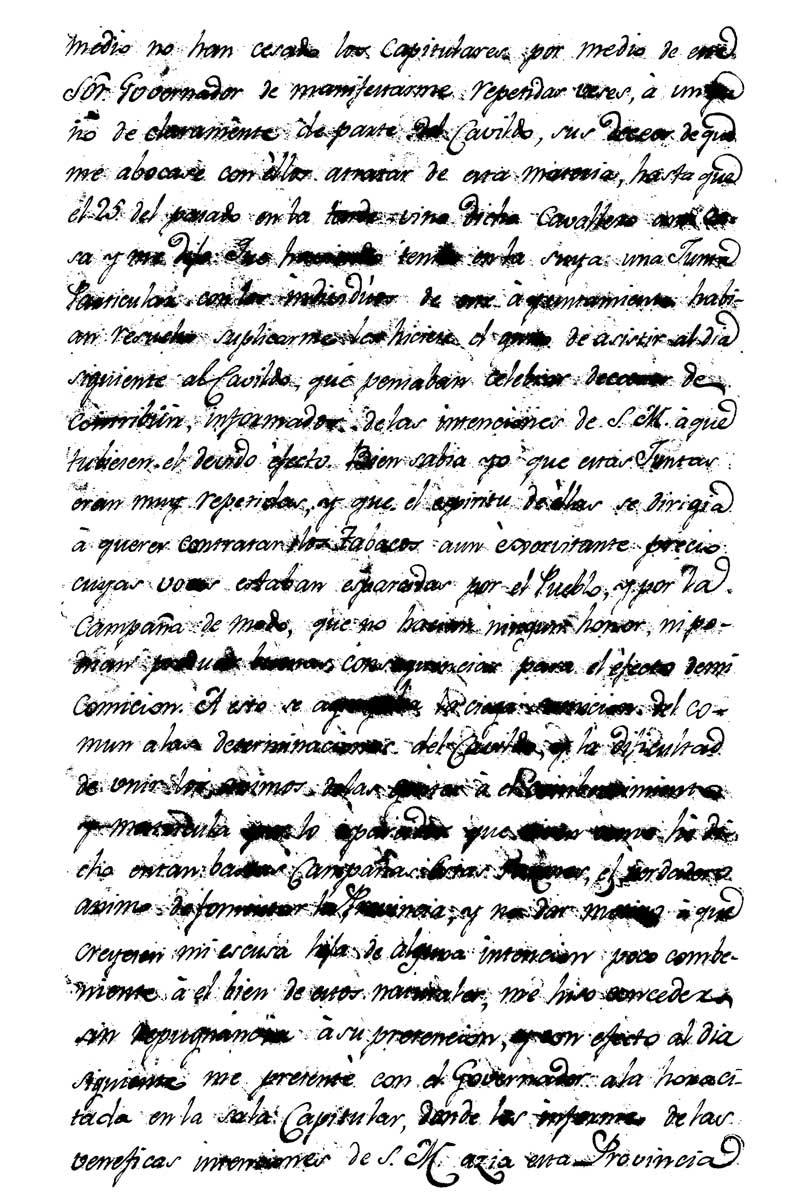 medio no han cesado los Capitulares por medio de este
Sõr. Governador de manifestarme repetidas veses, à un
ño de claramente de parte del Cavildo, sus deceos de que
me abocase con èllos atratar de esta materia, hasta que
el 25 del pasado en la tarde vino dicho Cavallero ami Ca-
sa y me dijo Que haciendo tenido en la suya una Junta
Particular con los individuos de este àyuntamiento habi-
an resuelto suplicarme les hiciese el gusto de asistir al dia
siguiente al Cavildo, que pensaban celebrar deceosos de
Contribuir, informados de las intenciones de S. M. àque
tubiesen el devido èfecto. Bien sabia yo que estas Juntas
eran muy repetidas, y que el èspiritu de èllas se dirigia
à querer contratar los Tabacos aun èxorvitante precio
cuyas voces estaban esparcidas por el Pueblo, y por la
Campaña de modo, que no hacian ningun honor, ni po-
drian producir buenas consequencias para el èfecto demi
Comicion. A esto se agregaba la ciega del co-
mun alas determinaciones del Cavildo, y la dificultad
de unir los animos delas gentes à el
y matricula que lo que como hé di-
cho entan bastas Campañas, el verdadero
animo de fomentar la Provincia, y no dar motivo à que
creyesen mi escusa hija de alguna intencion poco combe-
niente à el bien de estos naturales, me hiso conceder
sin repugnancia àsu pretencion, y con efecto al dia
siguiente me presentè con el Governador ala hora ci-
tada en la sala Capitular, donde les informe de las
beneficas intenciones de S. M. azia esta Provincia